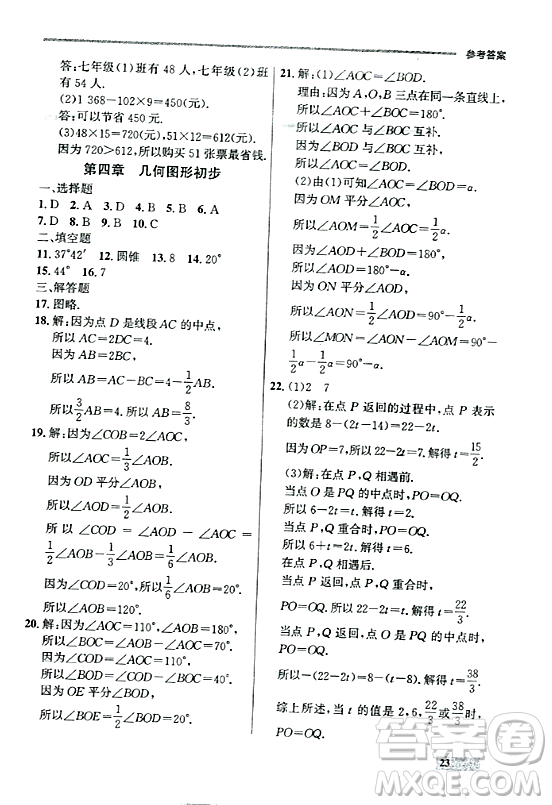 参考答案
答:七年级(1)班有48人,七年级(2)班
有54人.
(2)1 368-102×9=450(元).
答:可以节省450元.
(3)48×15=720(元),51×12=612(元).
因为720>612,所以购买51张票最省钱.
第四章 几何图形初步
一、选择题
1.D 2.A 3.D 4.B 5.D 6.A
7.D 8.B 9.B 10.B
二、填空题
11.37°42′ 12.圆锥 13.8 14.20°
15.44° 16.7
三、解答题
17.图略.
18.解:因为点D是线段AC的中点,
所以AC=2DC=4.
因为BC=1/2AB,AC=AB+BC,
所以3/2AB=4.所以AB=8/3.
19.解:因为∠COB=2∠AOC,
所以∠AOC=1/3∠AOB.
因为OD平分∠AOB,
所以∠AOD=1/2∠AOB.
所以∠COD=∠AOD-∠AOC=
1/2∠AOB-1/3∠AOB=1/6∠AOB.
因为∠COD=20°,所以1/6∠AOB=20°.
所以∠AOB=120°.
20.解:因为∠AOC=110°,∠AOB=180°,
所以∠BOC=∠AOB-∠AOC=70°.
因为∠COD=∠AOC=110°,
所以∠BOD=∠COD-∠BOC=40°.
因为OE平分∠BOD,
所以∠BOE=1/2∠BOD=20°.
21.解:(1)∠AOC=∠BOD.
理由:因为A,O,B三点在同一条直线上,
所以∠AOC+∠BOC=180°.
所以∠AOC与∠BOC互补.
因为∠BOD与∠BOC互补,
所以∠AOC=∠BOD.
(2)由(1)可知∠AOC=∠BOD=α.
因为OM平分∠AOC,
所以∠AOM=1/2∠AOC=1/2α.
因为∠BOD=α,
所以∠AOD=180°-α.
因为ON平分∠AOD,
所以∠AON=1/2∠AOD=90°-1/2α.
所以∠MON=∠AON-∠AOM=90°
-1/2α-1/2α=90°-α.
22.(1)2 7
(2)解:在点P返回的过程中,点P表示
的数是8-(2t-14)=22-2t.
因为OP=7,所以22-2t=7.解得t=15/2.
(3)解:在点P,Q相遇前.
当点O是PQ的中点时,PO=OQ.
所以6-2t=-t.解得t=6.
当点P,Q重合时,PO=OQ.
所以6+t=2t.解得t=2.
在点P,Q相遇后.
当点P,Q重合时,
PO=OQ.所以22-2t=t.解得t=22/3.
当点O是PQ的中点时,
PO=OQ.
所以t-(22-2t)=16.解得t=38/3.
综上所述,当t的值是2,6,22/3或38/3时,
23